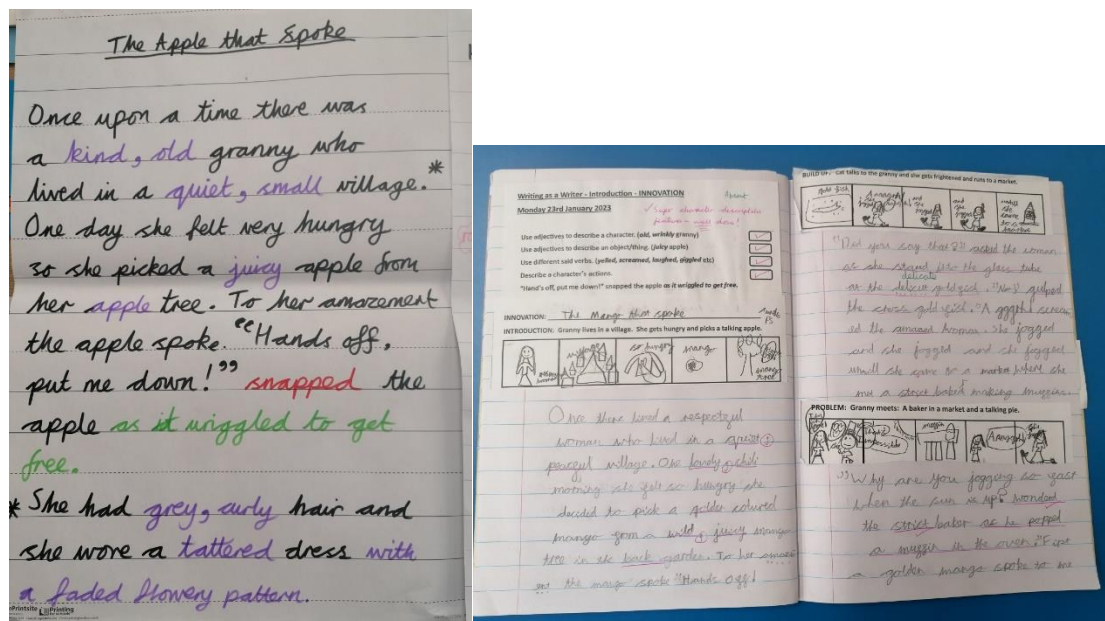 The Apple that Spoke
Once upon a time there was
a kind, old granny who
lived in a quiet, small village.*
One day she felt very hungry
so she picked a juicy apple from
her apple tree. To her amazement
the apple spoke. "Hands off,
put me down!" snapped the
apple as it wriggled to get
free.
*She had grey, curly hair and
she wore a tattered dress with
a faded flowery pattern.
Printsite Printing
Writing as a Writer - Introduction - INNOVATION
Monday 23rd January 2023
Use adjectives to describe a character. (old, wrinkly granny)
Use adjectives to describe an object/thing. (juicy apple)
Use different said verbs. (yelled, screamed, laughed, giggled etc)
Describe a character's actions.
"Hand's off, put me down!" snapped the apple as it wriggled to get free.
INNOVATION: The Mango that spoke
INTRODUCTION: Granny lives in a village. She gets hungry and picks a talking apple.
village
so hungry
mango
mango tree
Once there lived a respectful
woman who lived in a quiet
peaceful village. One lovely chili
morning she felt so hungry she
decided to pick a golden coloured
mango from a wild, juicy mango
tree in the back garden. To her
the mango spoke "Hands off!
BUILD UP: Cat talks to the granny and she gets frightened and runs to a market.
gold fish
"Did you say that?" asked the woman
as she stared into the glass tube
delicate
at the goldfish. "Yes!" gulped
the cross goldfish. "A
the human. She jogged
and she jogged and she jogged
until she came to a market where she
met a strict baker making muggins.
PROBLEM: Granny meets: A baker in a market and a talking pie.
impossible
muggin
"Why are you jogging so fast
when the sun is up? wonded
the strict baker as he popped
a muggin in the oven. "First
a golden mango spoke to me